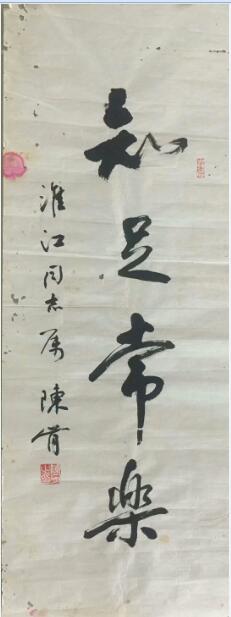 知足常樂
淮江同志属 陳前